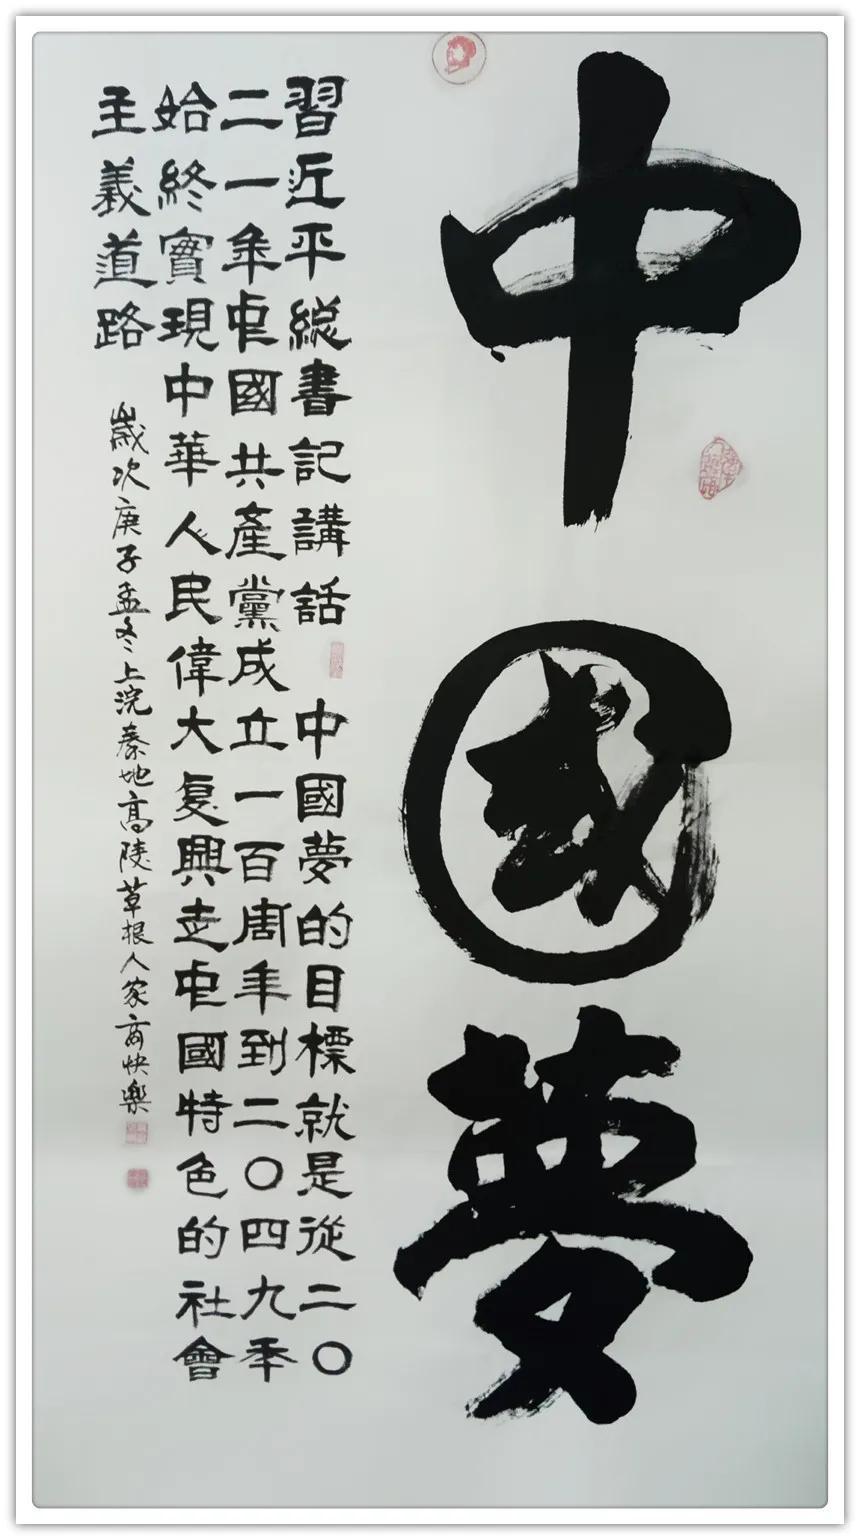 中國夢
習近平總書記講話 中國夢的目標就是從二〇
二一年中國共產黨成立一百周年到二〇四九年
始終實現中華人民偉大复興走中國特色的社會
主義道路
歲次庚子孟冬上浣秦地高陵草根人家商快樂